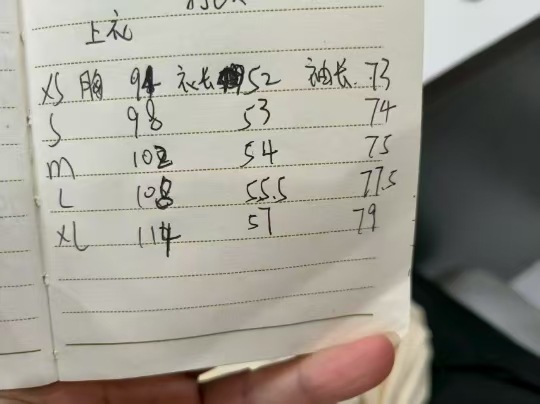 上衣
XS 胸 94 衣长 52 袖长 73
S 98 53 74
M 102 54 75
L 108 55.5 77.5
XL 114 57 79